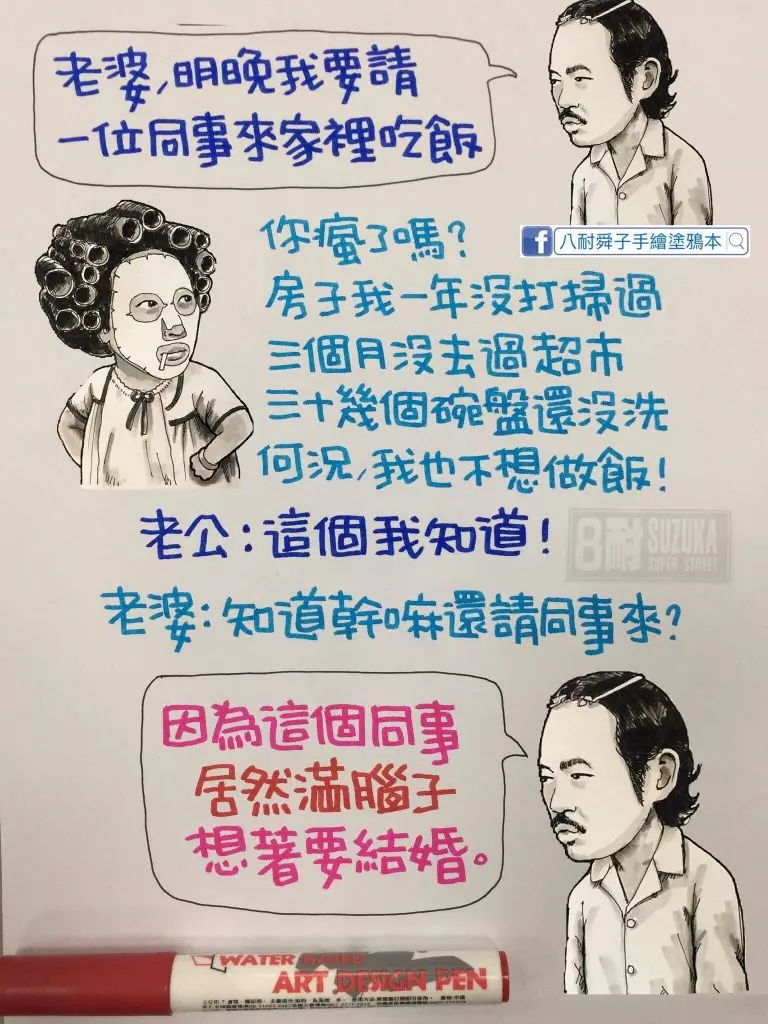 老婆,明晚我要請
一位同事來家裡吃飯
八耐舜子手繪塗鴉本
你瘋了嗎?
房子我一年沒打掃過
三個月沒去過超市
三十幾個碗盤還沒洗
何況,我也不想做飯!
老公:這個我知道!
8耐 SUZUKA
SUPER STREET
老婆:知道幹嘛還請同事來?
因為這個同事
居然滿腦子
想著要結婚。
WATER BASED
ART DESIGN PEN